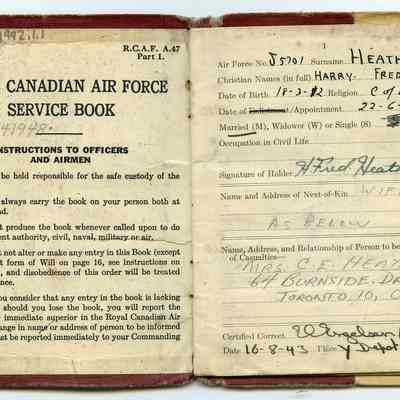 1992.1.1
R.C.A.F. A.47
Part 1.
CANADIAN AIR FORCE
SERVICE BOOK
INSTRUCTIONS TO OFFICERS
AND AIRMEN
be held responsible for the safe custody of the
always carry the book on your person both at
produce the book whenever called upon to do
ent authority, civil, naval, military or air.
not alter or make any entry in this Book (except
form of Will on page 16, see instructions on
and disobedience of this order will be treated
ence.
you consider that any entry in the book is lacking
should you lose the book, you will report the
immediate superior in the Royal Canadian Air
nge in name or address of person to be informed
ust be reported immediately to your Commanding
1
Air Force No. J5701 Surname HEATH
Christian Names (in full) HARRY FRED
Date of Birth 18-3-92 Religion C of
Date of Enlistment/Appointment 22-6-
Married (M), Widower (W) or Single (S)
Occupation in Civil Life
Signature of Holder H Fred Heat
Name and Address of Next-of-Kin WIF
AS BELOW
Name, Address, and Relationship of Person to be
of Casualties
MRS C.E. HEAT
64 BURNSIDE. DR
TORONTO 10, O
Certified Correct
Date 16-8-43 Place Y Depot